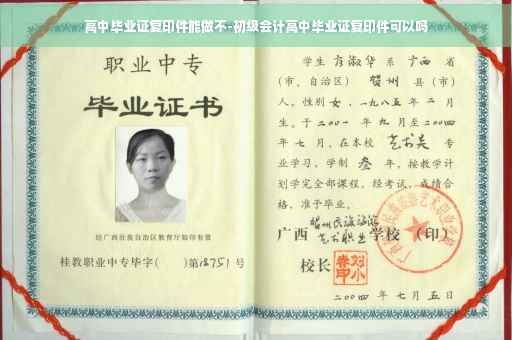 高中毕业证复印件能做不-初级会计高中毕业证复印件可以吗
职业中专
毕业证书
经广西壮族自治区教育厅验印有效
桂教职业中专毕字( )第18751号
学生 方淑华 系 广西 省
(市、自治区) 贺州 县(市)
人,性别 女,一九八五年 二 月
生。于二00一 年 九 月至二00四
年 七 月,在本校 艺术类 专
业学习,学制 叁 年,按教学计
划学完全部课程,经考试,成绩合
格,准予毕业。
贺州民族旅游
广西 艺术职业 学校 (印)
校长
二00四 年 七 月 五 日